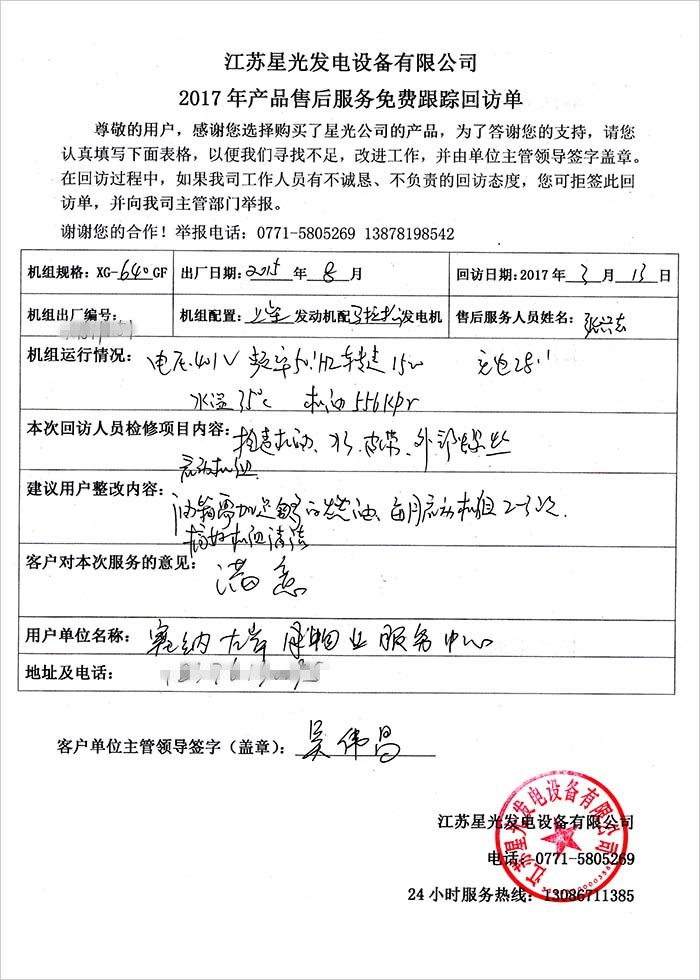 江苏星光发电设备有限公司
2017年产品售后服务免费跟踪回访单
尊敬的用户，感谢您选择购买了星光公司的产品，为了答谢您的支持，请您
认真填写下面表格，以便我们寻找不足，改进工作，并由单位主管领导签字盖章。
在回访过程中，如果我司工作人员有不诚恳、不负责的回访态度，您可拒签此回
访单，并向我司主管部门举报。
谢谢您的合作！举报电话：0771-5805269 13878198542
机组规格：XG-640GF 出厂日期：2015 年 8 月 回访日期：2017年 3 月 13 日
机组出厂编号： 机组配置：上柴 发动机配 马拉松 发电机 售后服务人员姓名：
机组运行情况： 电压.401V 频率50.1HZ 转速1500 充电28.1
水温35℃ 机油556kpr
本次回访人员检修项目内容：检查机油、水、皮带、外部螺丝
启动机组
建议用户整改内容：油箱需加足够的燃油、每月启动机组2-3次.
搞好机组清洁
客户对本次服务的意见： 满意
用户单位名称： 塞纳左岸 物业服务中心
地址及电话：
客户单位主管领导签字（盖章）：吴伟昌
江苏星光发电设备有限公司
电话：0771-5805269
24小时服务热线：13086711385
江苏星光发电设备有限公司